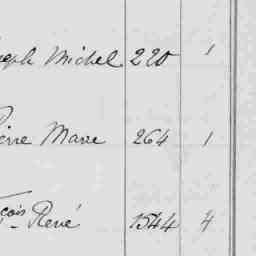 Michel 220 1
Pierre Marie 264 1
çois René 1544 4